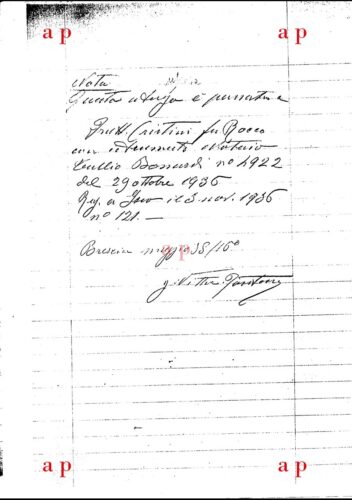 a p
a p
Nota
Questa utenza è passata a
Frat. Cristini fu Rocco
con istrumento notaio
Tullio Bonardi nº 4922
del 29 ottobre 1936
Reg. a Iseo il 3 nov. 1936
nº 121. —
Brescia maggio 38/16º
a p
a p
a p